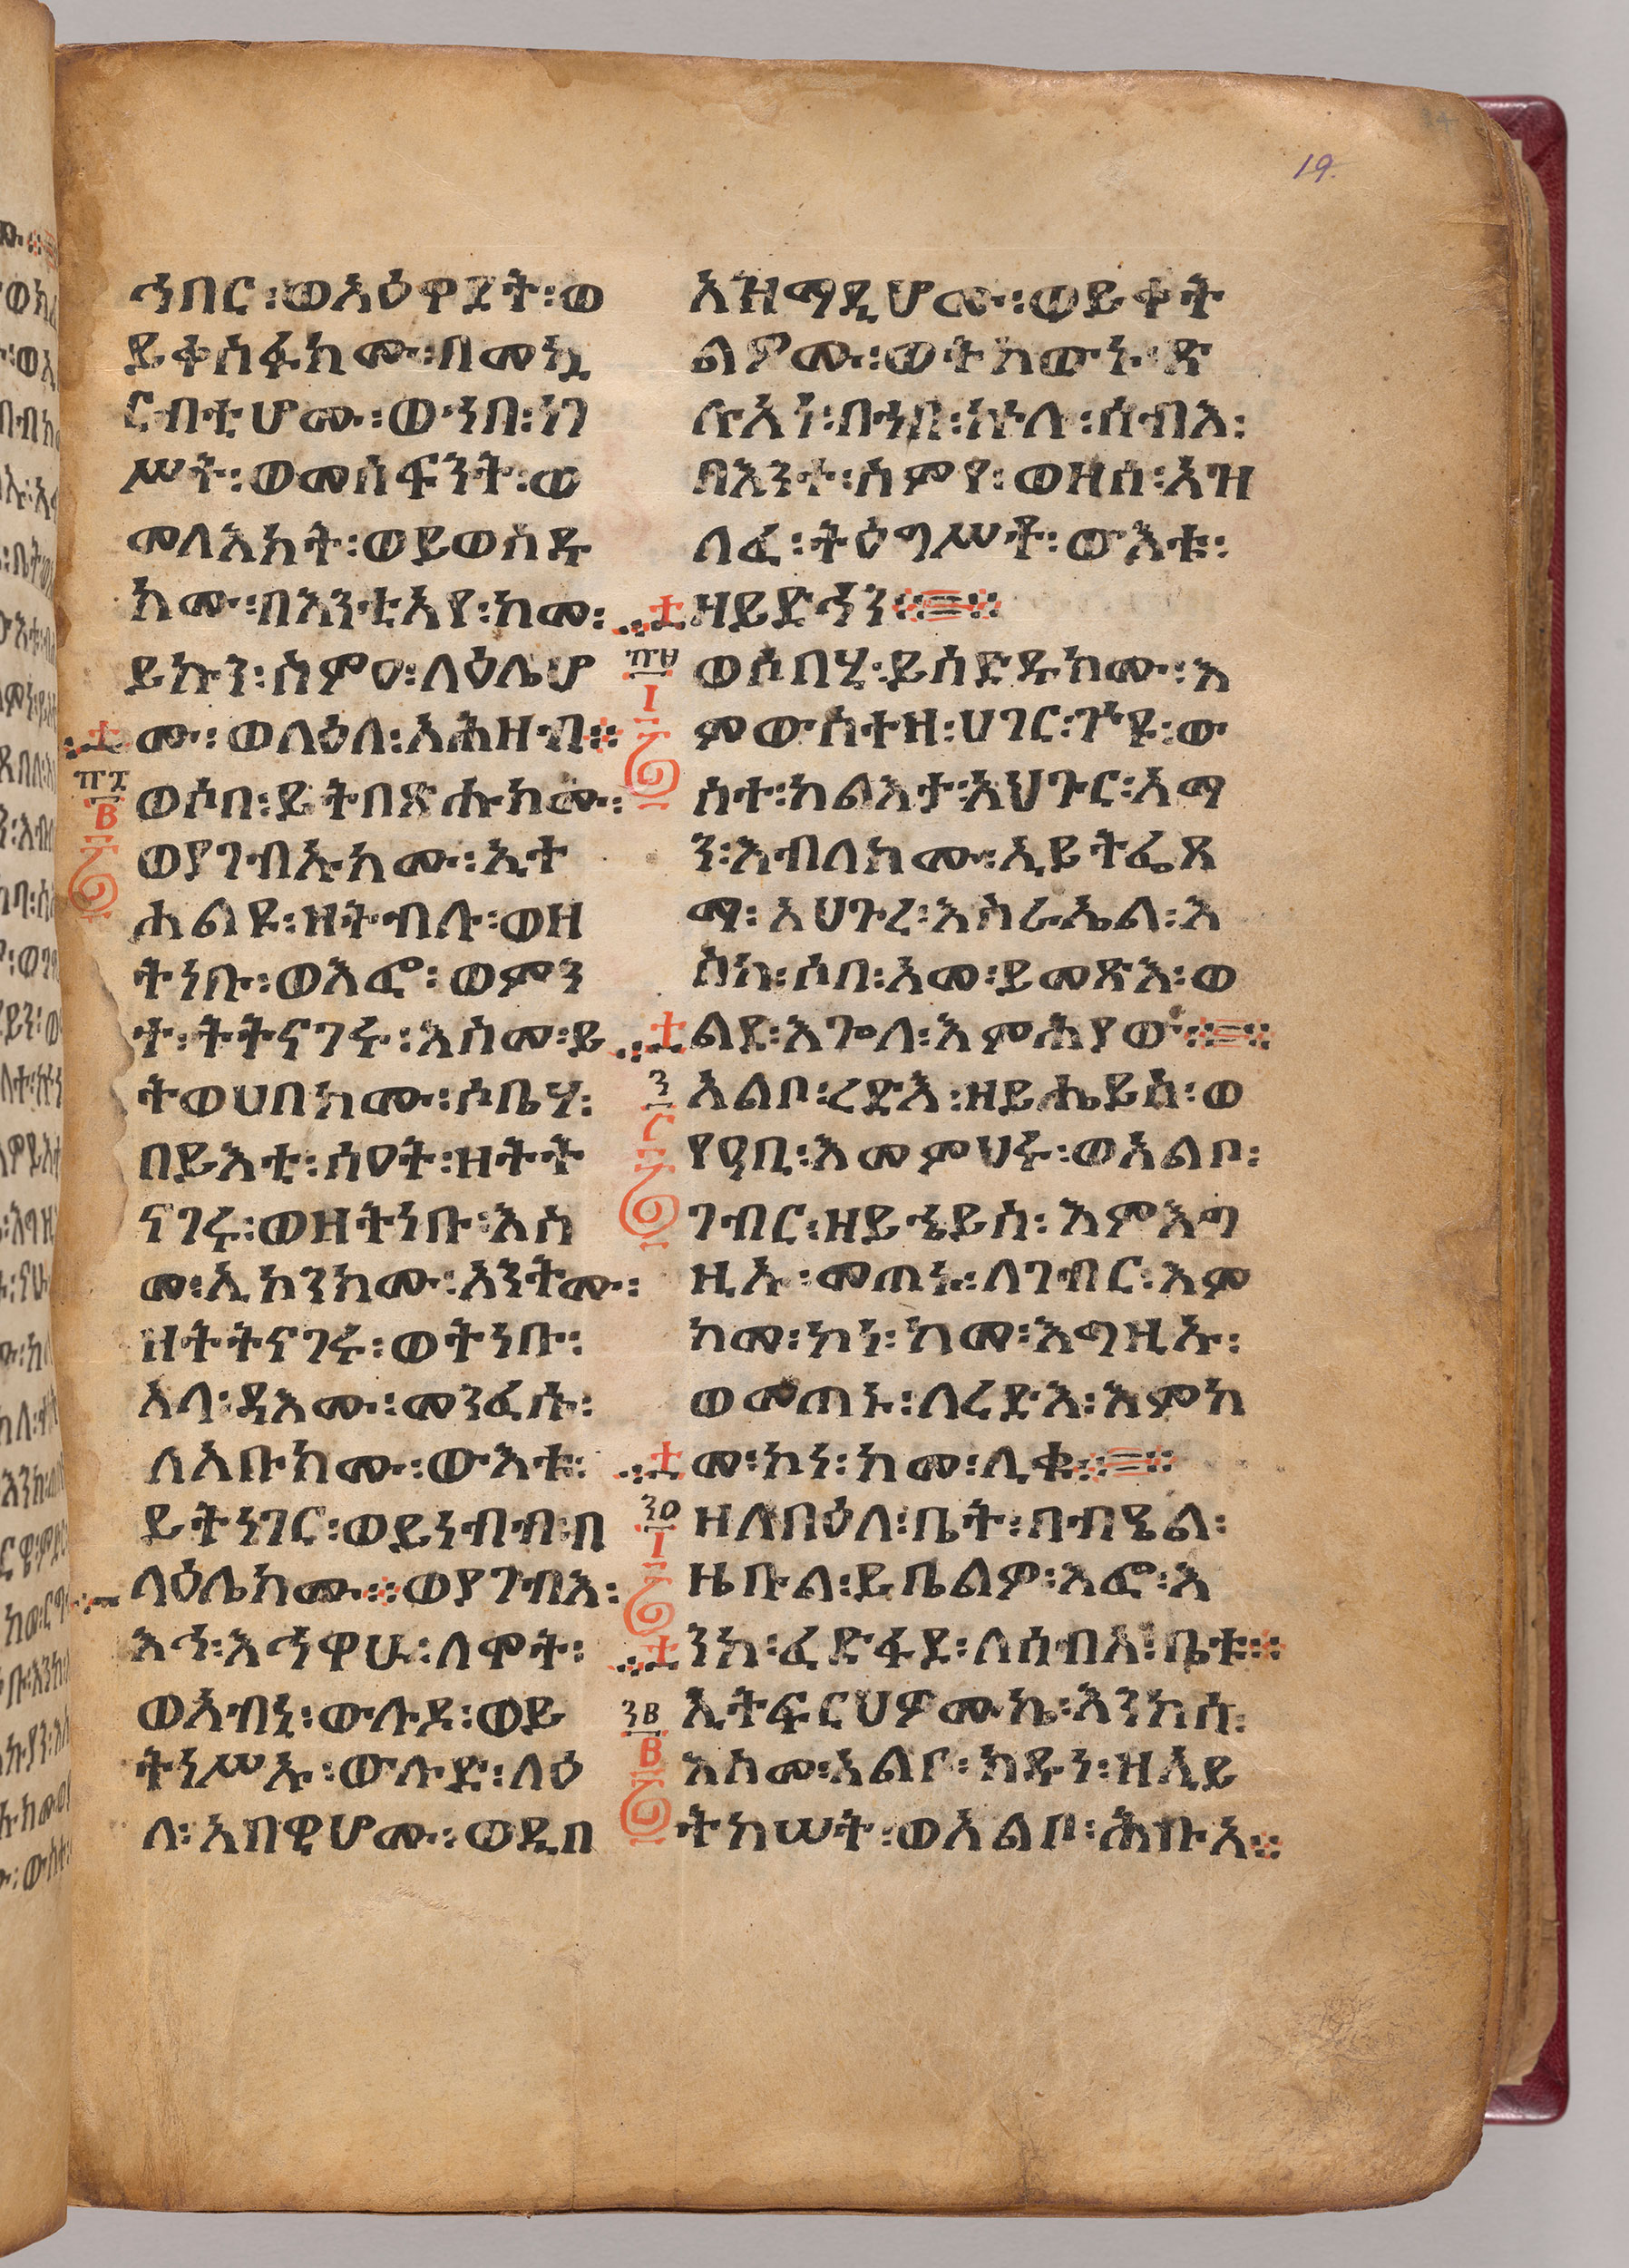 19.
ኅበር፡ወአዕዋደት፡ወ
ይቀስፉክሙ፡በመኳ
ርብቲሆሙ፡ወኀበ፡ነገ
ሥት፡ወመሳፍንት፡ወ
መላእክት፡ወይወስዱ
ክሙ፡በእንቲአየ፡ከመ፡
ይኩን፡ስምዐ፡ላዕሌሆ
ሙ፡ወላዕለ፡አሕዛብ፨
፹፯
በ
ወሶበ፡ይትበጽሑክሙ፡
ወያገብኡክሙ፡ኢተ
ሐልዩ፡ዘትብሉ፡ወዘ
ትነቡ፡ወእፎ፡ወምን
ተ፡ትትናገሩ፡እስመ፡ይ
ትወሀበክሙ፡ሶቤሃ፡
በይእቲ፡ሰዐት፡ዘትት
ናገሩ፡ወዘትነቡ፡እስ
መ፡ኢኮንክሙ፡አንትሙ፡
ዘትትናገሩ፡ወትነቡ፡
አላ፡ዳእሙ፡መንፈሱ፡
ለአቡክሙ፡ውእቱ፡
ይትነገር፡ወይነብብ፡በ
ላዕሌክሙ፨ወያገብእ፡
እኅ፡እኅዋሁ፡ለሞት፡
ወአብኒ፡ውሉዶ፡ወይ
ትነሥኡ፡ውሉድ፡ላዕ
ለ፡አበዊሆሙ፡ወዲበ
አዝማዲሆሙ፡ወይቀት
ልዎሙ፡ወትከውኑ፡ጽ
ሉአነ፡በኀበ፡ኵሉ፡ሰብእ፡
በእንተ፡ስምየ፡ወዘሰ፡አዝ
ለፈ፡ትዕግሥቶ፡ውእቱ፡
ዘይድኅን፨፨
፹፰
I
ወሶበሂ፡ይሰድዱክሙ፡እ
ምውስተዛ፡ሀገር፡ጕዩ፡ው
ስተ፡ካልእታ፡አህጉር፡አማ
ን፡እብለክሙ፡ኢይትፌጸ
ማ፡አህጉረ፡እስራኤል፡እ
ስከ፡ሶበ፡አመ፡ይመጽእ፡ወ
ልደ፡እጓለ፡እምሕያው፨፨
፺
አልቦ፡ረድእ፡ዘይሔይስ፡ወ
የዓቢ፡እመምህሩ፡ወአልቦ፡
ገብር፡ዘይኄይስ፡እምእግ
ዚኡ፡መጠኑ፡ለገብር፡እም
ከመ፡ኮነ፡ከመ፡እግዚኡ፡
ወመጠኑ፡ለረድእ፡እምከ
መ፡ኮነ፡ከመ፡ሊቁ፨፨
I
ዘለበዕለ፡ቤት፡በብዔል፡
ዜቡል፡ይቤልዎ፡እፎ፡እ
ንከ፡ፈድፋደ፡ለሰብአ፡ቤቱ፨
ኢትፍርህዎሙኬ፡እንከሰ፡
እስመ፡አልቦ፡ክዱን፡ዘኢይ
ትከሠት፡ወአልቦ፡ሕቡእ፨